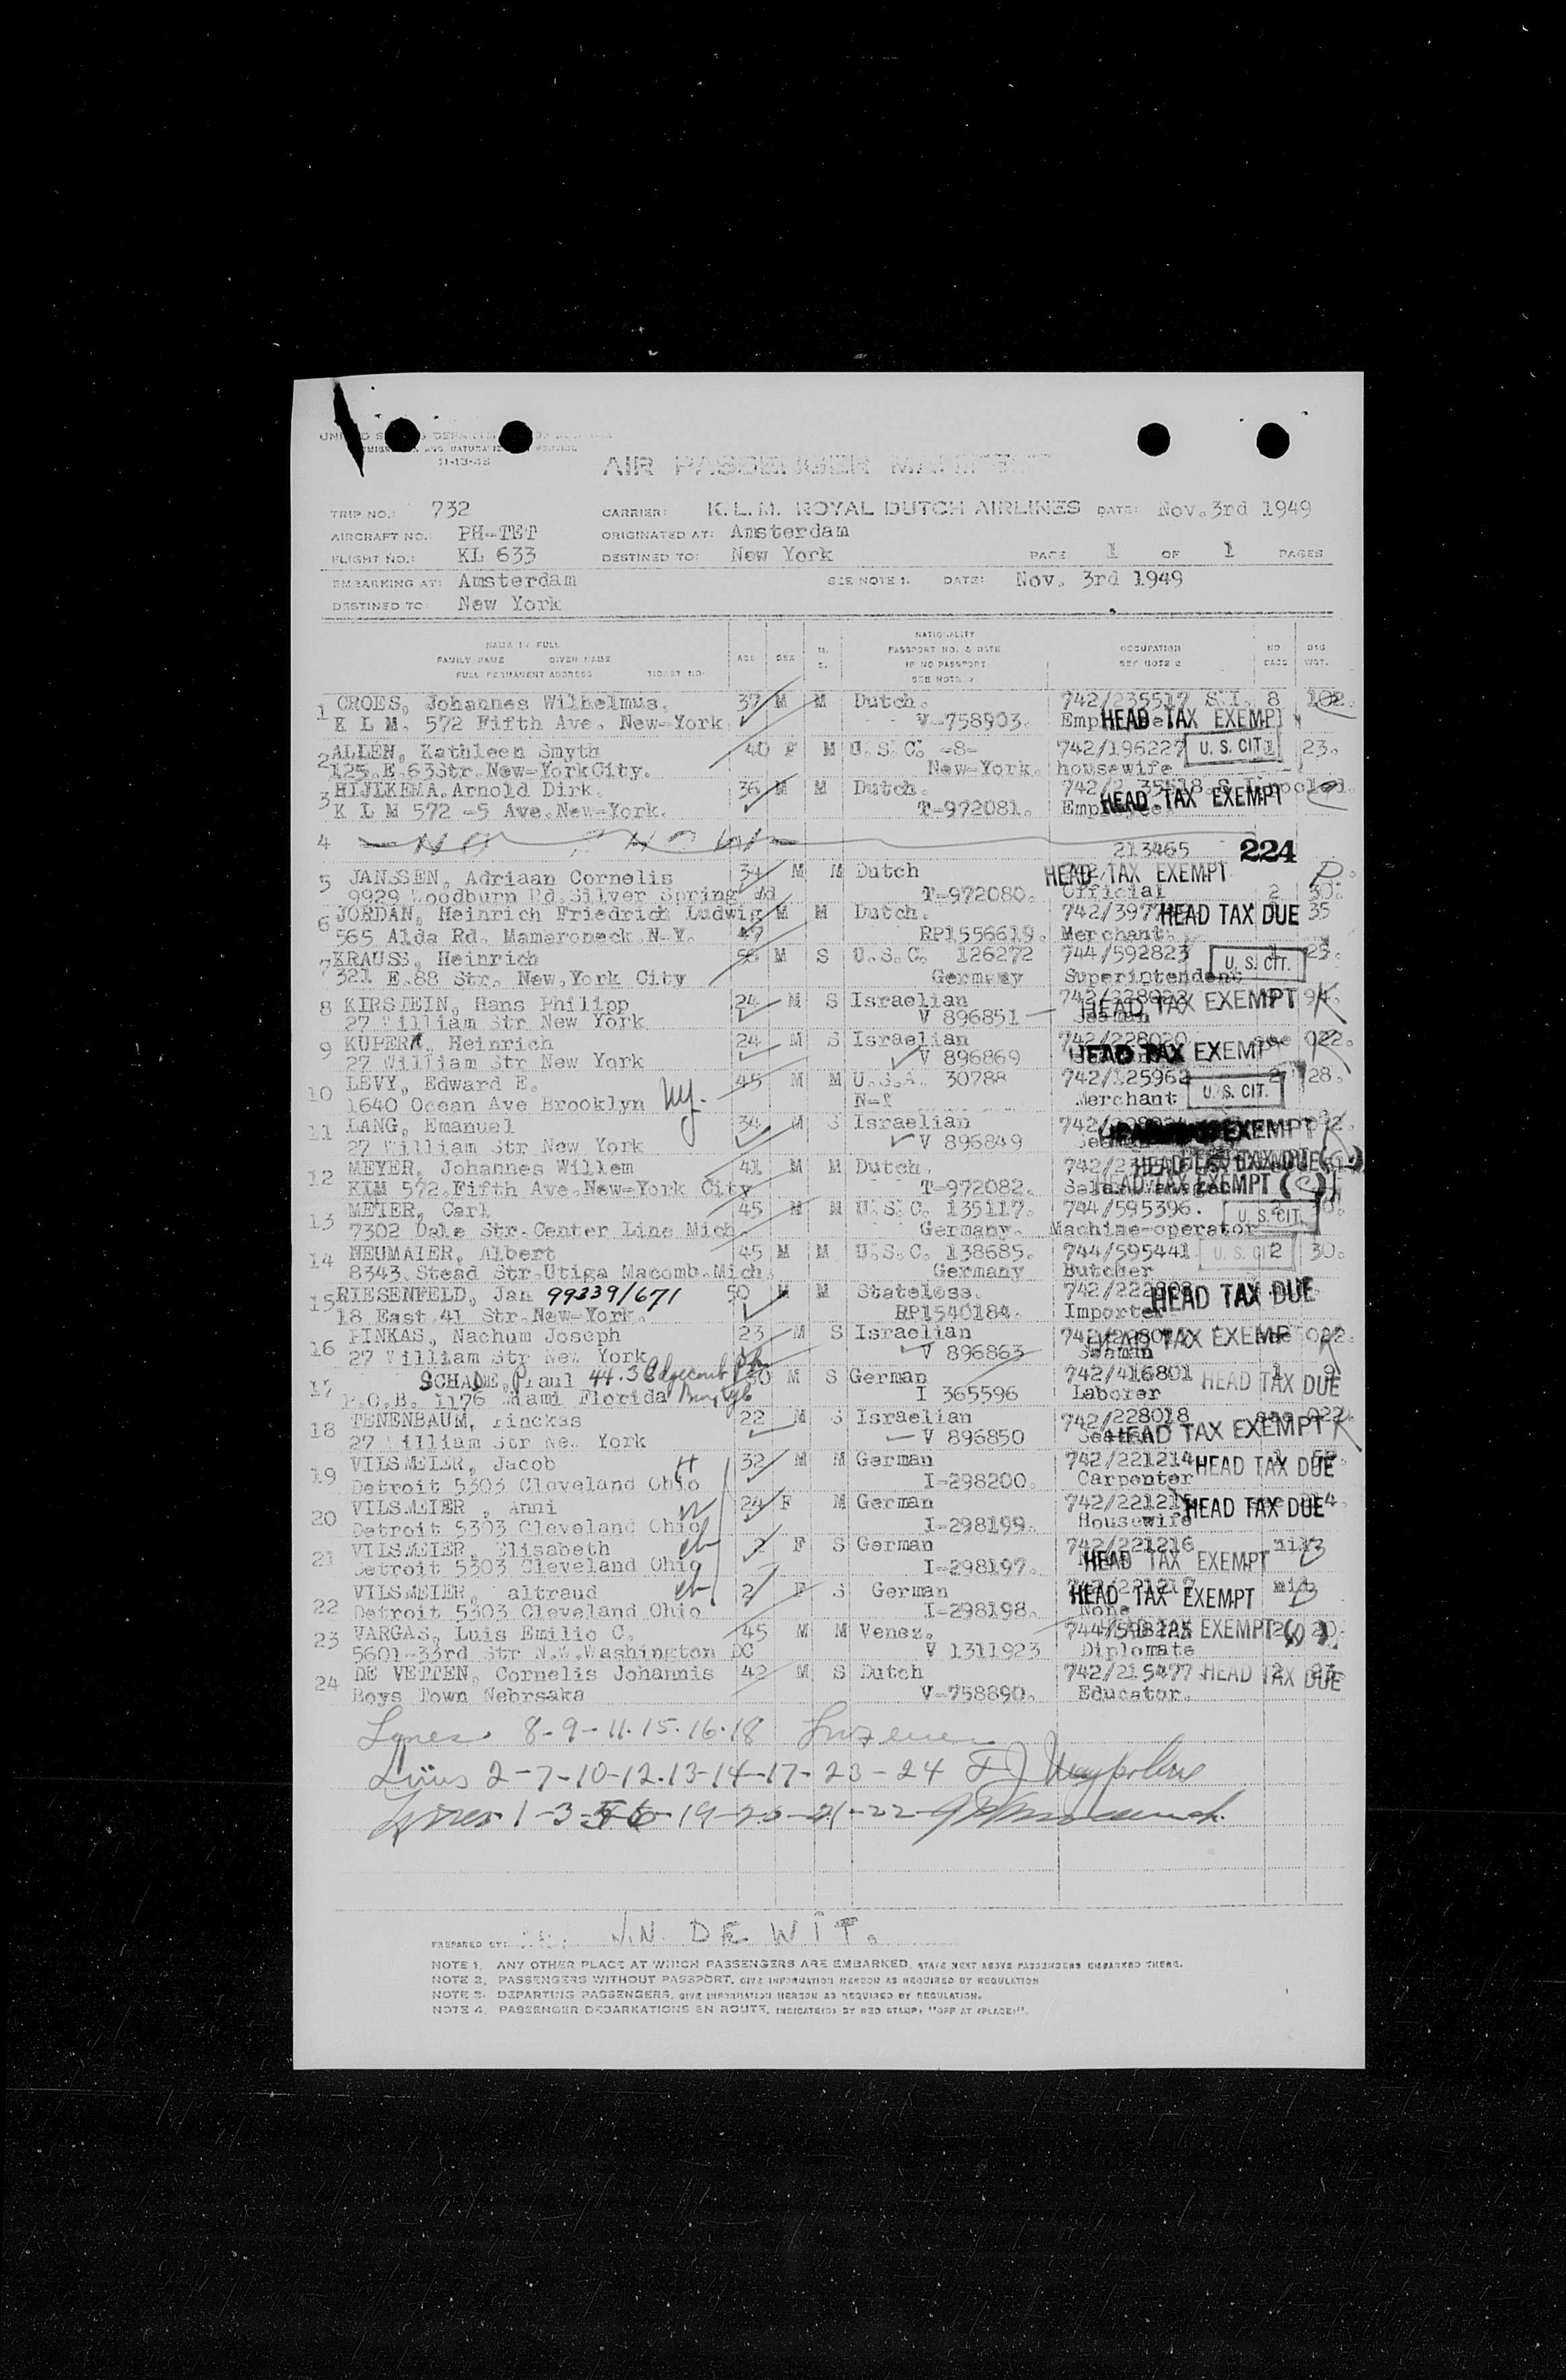 11-13-48
AIR PASSENGER MANIFEST
TRIP NO.: 732 CARRIER: K.L.M. ROYAL DUTCH AIRLINES DATE: Nov.3rd 1949
AIRCRAFT NO.: PH-TET ORIGINATED AT: Amsterdam
FLIGHT NO.: KL 633 DESTINED TO: New York PAGE 1 OF 1 PAGES
EMBARKING AT: Amsterdam SEE NOTE 1. DATE: Nov. 3rd 1949
DESTINED TO: New York
NAME IN FULL
FAMILY NAME GIVEN NAME
FULL PERMANENT ADDRESS TICKET NO.
AGE SEX M. S.
NATIONALITY
PASSPORT NO. & DATE
IF NO PASSPORT
SEE NOTE 2
OCCUPATION
SEE NOTE 2
NO BAGS
BAG WGT.
1 CROES, Johannes Wilhelmus. 37 M M Dutch. 742/235517 S.I. 8 102.
K L M. 572 Fifth Ave. New-York V-758903. HEAD TAX EXEMPT
2 ALLEN, Kathleen Smyth 40 F M U.S.C. -8- 742/196227 U. S. CIT. 1 23.
125.E.63Str.New-YorkCity. New-York. housewife
3 HIJLKEMA.Arnold Dirk. 36 M M Dutch.
K L M 572 -5 Ave.New-York. T-972081. HEAD TAX EXEMPT
4
213465 224
5 JANSSEN, Adriaan Cornelis 34 M M Dutch HEAD TAX EXEMPT
9929 Woodburn Rd.Silver Spring Md T-972080. Official 2 30.
6 JORDAN, Heinrich Friedrich Ludwig M M Dutch. HEAD TAX DUE 35
565 Alda Rd. Mamaroneck.N-Y. 47 RP1556619. Merchant.
7 KRAUSS, Heinrich 56 M S U.S.C. 126272 744/592823 U. S. CIT. 25.
321 E.88 Str. New,York City Germany Superintendent
8 KIRSTEIN, Hans Philipp 24 M S Israelian 742/228022 HEAD TAX EXEMPT
27 William Str New York V 896851 Seaman
9 KUPERA, Heinrich 24 M S Israelian 742/228020 see 022.
27 William Str New York V 896869 HEAD TAX EXEMPT
10 LEVY, Edward E. 45 M M U.S.A. 30788 742/125962 2 28.
1640 Ocean Ave Brooklyn NY. Merchant U. S. CIT.
11 LANG, Emanuel 34 M S Israelian EXEMPT
27 William Str New York V 896849
12 MEYER, Johannes Willem 41 M M Dutch. HEAD TAX DUE
KLM 572.Fifth Ave.New-York City T-972082. HEAD TAX EXEMPT
13 MEIER, Carl 45 M M U.S.C. 135117. 744/595396. U. S. CIT.
7302 Dale Str.Center Line Mich. Germany. Machine-operator
14 NEUMAIER, Albert 45 M M U.S.C. 138685. 744/595441 U. S. CIT 2 30.
8343 Stead Str.Utiga Macomb.Mich. Germany Butcher
15 RIESENFELD, Jan 99239/671 50 M M Stateless. HEAD TAX DUE
18 East.41 Str.New-York. RP1540184. Importer
16 PINKAS, Nachum Joseph 23 M S Israelian HEAD TAX EXEMP
27 William Str New York V 896863 Seaman
17 SCHADE, Paul 50 M S German 742/416801 1 9
P.O.B. 1176 Miami Florida I 365596 Laborer HEAD TAX DUE
18 TENENBAUM, Pinckas 22 M S Israelian 742/228018 see 022
27 William Str New York V 896850 HEAD TAX EXEMPT
19 VILSMEIER, Jacob 32 M M German 742/221214 HEAD TAX DUE
Detroit 5303 Cleveland Ohio I-298200. Carpenter
20 VILSMEIER , Anni 24 F M German HEAD TAX DUE
Detroit 5303 Cleveland Ohio I-298199. Housewife
21 VILSMEIER, Elisabeth 2 F S German 742/221216
Detroit 5303 Cleveland Ohio I-298197. HEAD TAX EXEMPT
22 VILSMEIER, altraud 2 F S German HEAD TAX EXEMPT
Detroit 5303 Cleveland Ohio I-298198. None
23 VARGAS, Luis Emilio C. 45 M M Venez. HEAD TAX EXEMPT 20.
5601-33rd Str N.W.Washington DC V 1311923 Diplomate
24 DE VETTEN, Cornelis Johannis 42 M S Dutch 742/215477 HEAD TAX DUE
Boys Town Nebrsaka V-758890. Educator.
Lines 8-9-11.15.16.18
Lines 2-7-10-12.13-14-17-23-24
Lines 1-3-5-6-19-20-21-22
PREPARED BY: J.N. DE WIT.
NOTE 1. ANY OTHER PLACE AT WHICH PASSENGERS ARE EMBARKED, STATE NEXT ABOVE PASSENGERS EMBARKED THERE.
NOTE 2. PASSENGERS WITHOUT PASSPORT. GIVE INFORMATION HEREON AS REQUIRED BY REGULATION
NOTE 3. DEPARTING PASSENGERS, GIVE INFORMATION HEREON AS REQUIRED BY REGULATION.
NOTE 4. PASSENGER DEBARKATIONS EN ROUTE, INDICATE(D) BY RED STAMP; "OFF AT (PLACE)".